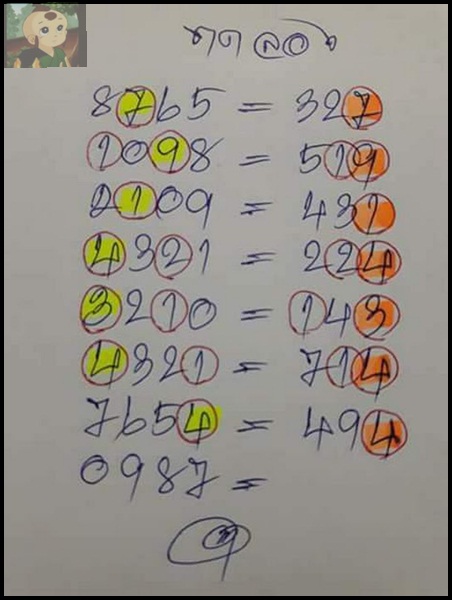 8765 = 327
1098 = 519
2109 = 431
4321 = 224
3210 = 143
4321 = 714
7654 = 494
0987 =